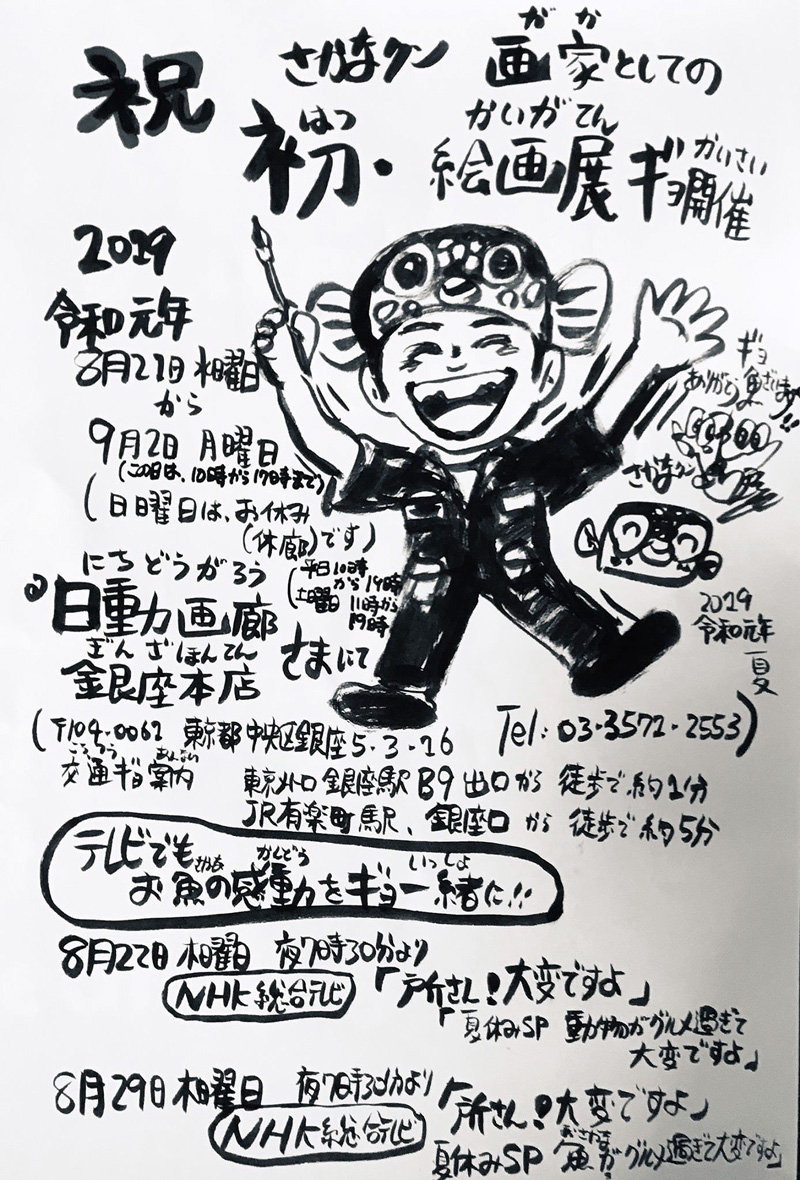 祝
さかなクン 画家としての
がか
初・絵画展ギョ開催
はつ かいがてん かいさい
2019
令和元年
8月21日 水曜日
から
9月2日 月曜日
(この日は、10時から17時まで)
(日曜日は、お休み
(休廊)です)
(平日10時
から19時
土曜日 11時から
19時)
にちどうがろう
日動画廊
ぎんざほんてん
銀座本店 さまにて
ギョ
ありがとう魚ざいます!!
さかなクン
2019
令和元年
夏
(〒104-0062 東京都中央区銀座5-3-16 Tel: 03-3571-2553)
こうつう あんない
交通ギョ案内 東京メトロ 銀座駅 B9出口から 徒歩で約1分
JR有楽町駅、銀座口 から 徒歩で約5分
テレビでも
さかな かんどう いっしょ
お魚の感動をギョ一緒に!!
8月22日 木曜日 夜7時30分より
NHK総合テレビ 「所さん!大変ですよ」
「夏休みSP 動物がグルメ過ぎて
大変ですよ」
8月29日 木曜日 夜7時30分より
NHK総合テレビ 「所さん!大変ですよ」
おさかな
夏休みSP 魚がグルメ過ぎて大変ですよ」